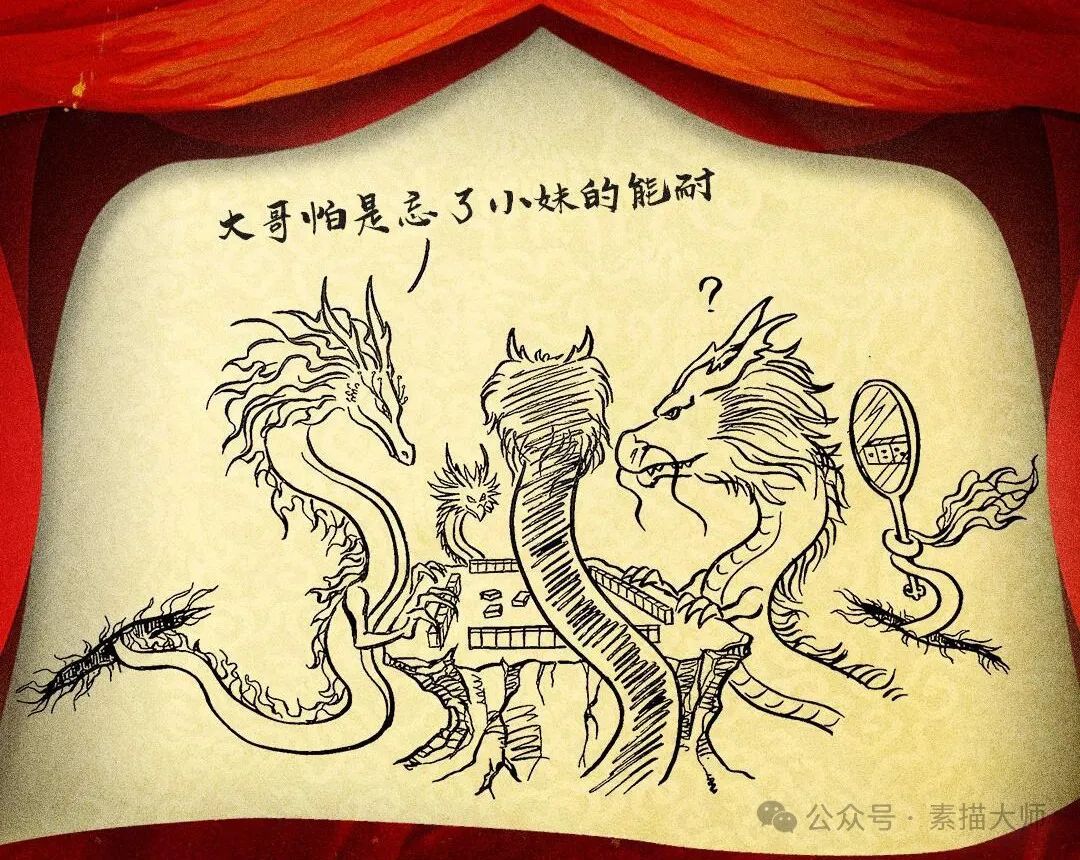 大哥怕是忘了小妹的能耐
?
公众号·素描大师